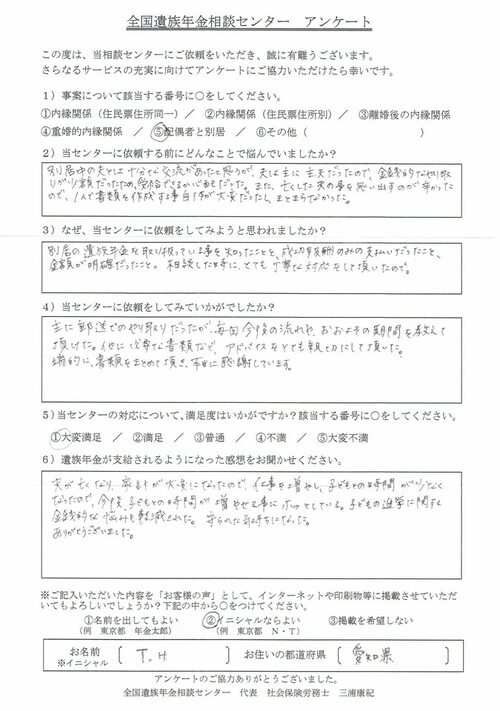 全国遺族年金相談センター　アンケート
この度は、当相談センターにご依頼をいただき、誠に有難うございます。
さらなるサービスの充実に向けてアンケートにご協力いただけたら幸いです。
1）事案について該当する番号に○をしてください。
①内縁関係（住民票住所同一）／ ②内縁関係（住民票住所別）／ ③離婚後の内縁関係
④重婚的内縁関係 ／ ⑤配偶者と別居 ／ ⑥その他（　　　　　　　）
2）当センターに依頼する前にどんなことで悩んでいましたか？
別居中の夫とは十分な交流があったと思うが、夫は主に主夫だったので、金銭的なやり取
りが少額だったため、受給できるか心配だった。また、亡くした夫の事を思い出すのが辛かった
ので、1人で書類を作成する事自体が大変だったし、まとまらなかった。
3）なぜ、当センターに依頼をしてみようと思われましたか？
別居の遺族年金を取り扱っている事を知ったことと、成功報酬のみの支払いだったこと、
金額が明確だったこと。相談した時に、とても丁寧な対応をして頂いたので。
4）当センターに依頼をしてみていかがでしたか？
主に郵送でのやり取りだったが、毎回今後の流れや、おおよその期間を教えて
頂けた。他に必要な書類など、アドバイスをとても親切にして頂いた。
端的に、書類をまとめて頂き、本当に感謝しています。
5）当センターの対応について、満足度はいかがですか？該当する番号に○をしてください。
①大変満足 ／ ②満足 ／ ③普通 ／ ④不満 ／ ⑤大変不満
6）遺族年金が支給されるようになった感想をお聞かせください。
夫が亡くなり、家計が大変になったので、仕事を増やし、子どもとの時間が少なく
なったので、今後、子どもとの時間が増やせる事にホッとしている。子どもの進学に関する
金銭的な悩みも軽減された。守られた気持ちになった。
ありがとうございました。
※ご記入いただいた内容を「お客様の声」として、インターネットや印刷物等に掲載させていただ
いてもよろしいでしょうか？下記の中から○をつけてください。
①名前を出してもよい　②イニシャルならよい　③掲載を希望しない
（例　東京都　年金太郎）　（例　東京都　N・T）
お名前 〔 T.H 〕 お住いの都道府県 〔 愛知県 〕
※イニシャル
アンケートのご協力ありがとうございました。
全国遺族年金相談センター　代表　社会保険労務士　三浦康紀